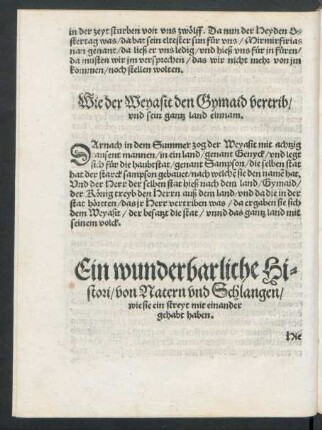 in der zeyt sturben von vns zwölff. Da nun der Heyden O-
stertag was/ da bat sein eltester sun für vns/ Mirmirsirias
nan genant/ da ließ er vns ledig/ vnd hieß vns für in füren/
da musten wir jm versprechen/ das wir nicht mehr von jm
kommen/ noch stellen wolten.
Wie der Weyasit den Gymaid vertrib/
vnd sein gantz land einnam.
DArnach in dem Summer zog der Weyasit mit achtzig
tausent mannen/ in ein land/ genant Genyck/ vnd legt
sich für die haubtstat/ genant Sampson/ die selben stat
hat der starck sampson gebauet/ nach welchē sie den namē hat.
Vnd der Herr der selben stat hieß nach dem land/ Gymaid/
der König treyb den Herrn auß dem land/ vnd da die in der
stat hörten/ das jr Herr vertriben was/ da ergaben sie sich
dem Weyasit/ der besatzt die stat/ vnnd das gantz land mit
seinem volck.
Ein wunderbarliche Hi-
stori/ von Natern vnd Schlangen/
wie sie ein streyt mit einander
gehabt haben.
Hie